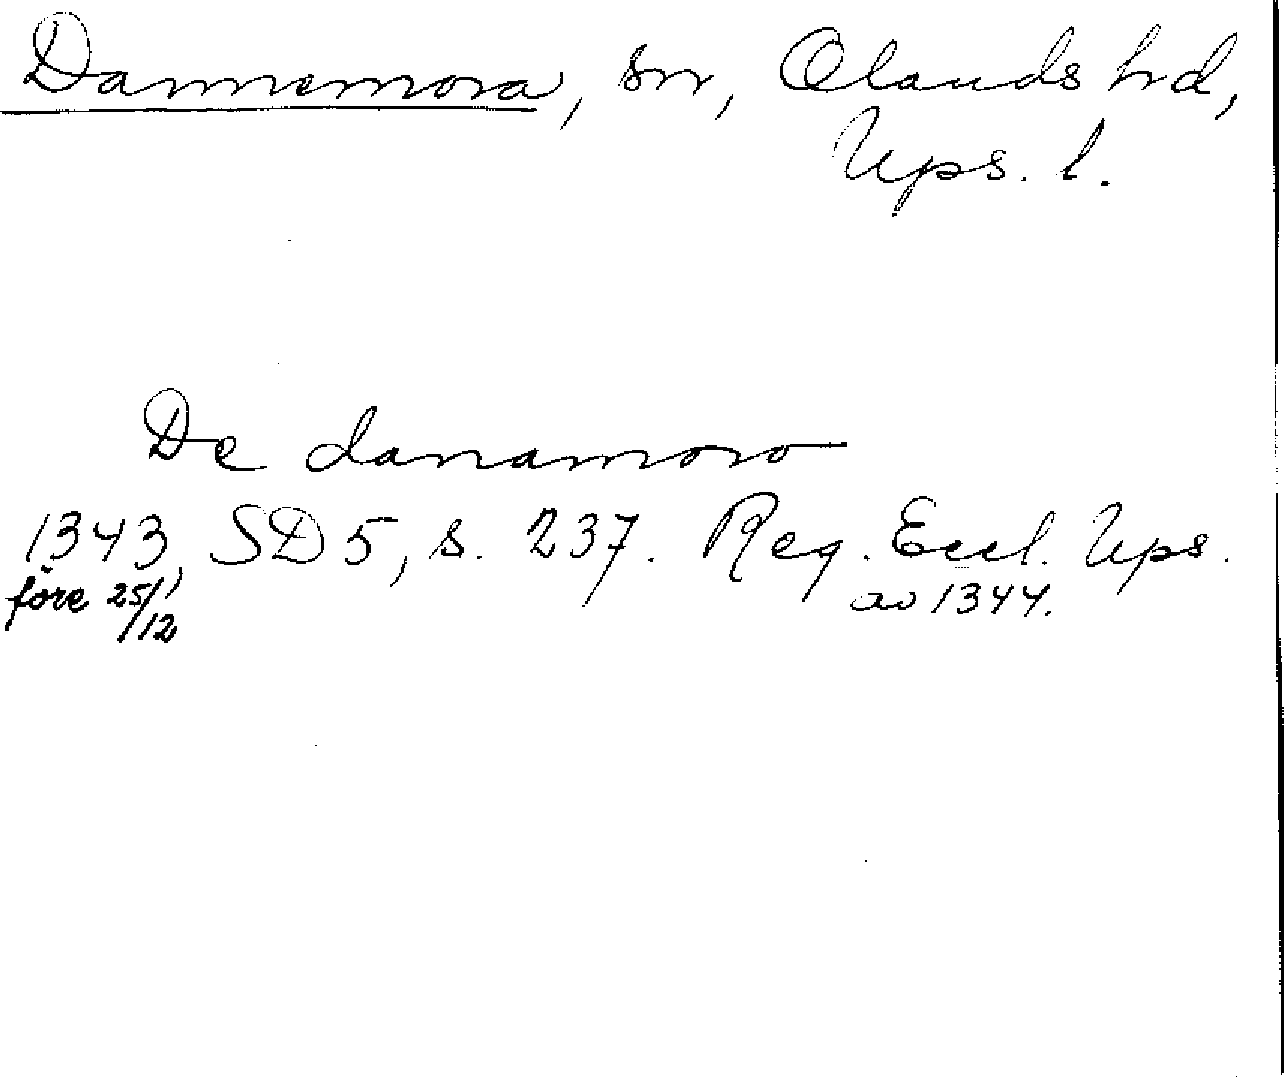 Dannemora, sn, Olands hd,
Ups. l.
De danamoro
1343, SD 5, s. 237. Reg. Eccl. Ups.
före 25/12 av 1344.